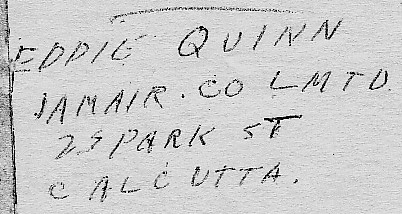 EDDIE QUINN
JAMAIR. CO LMTD.
25 PARK ST
CALCUTTA.